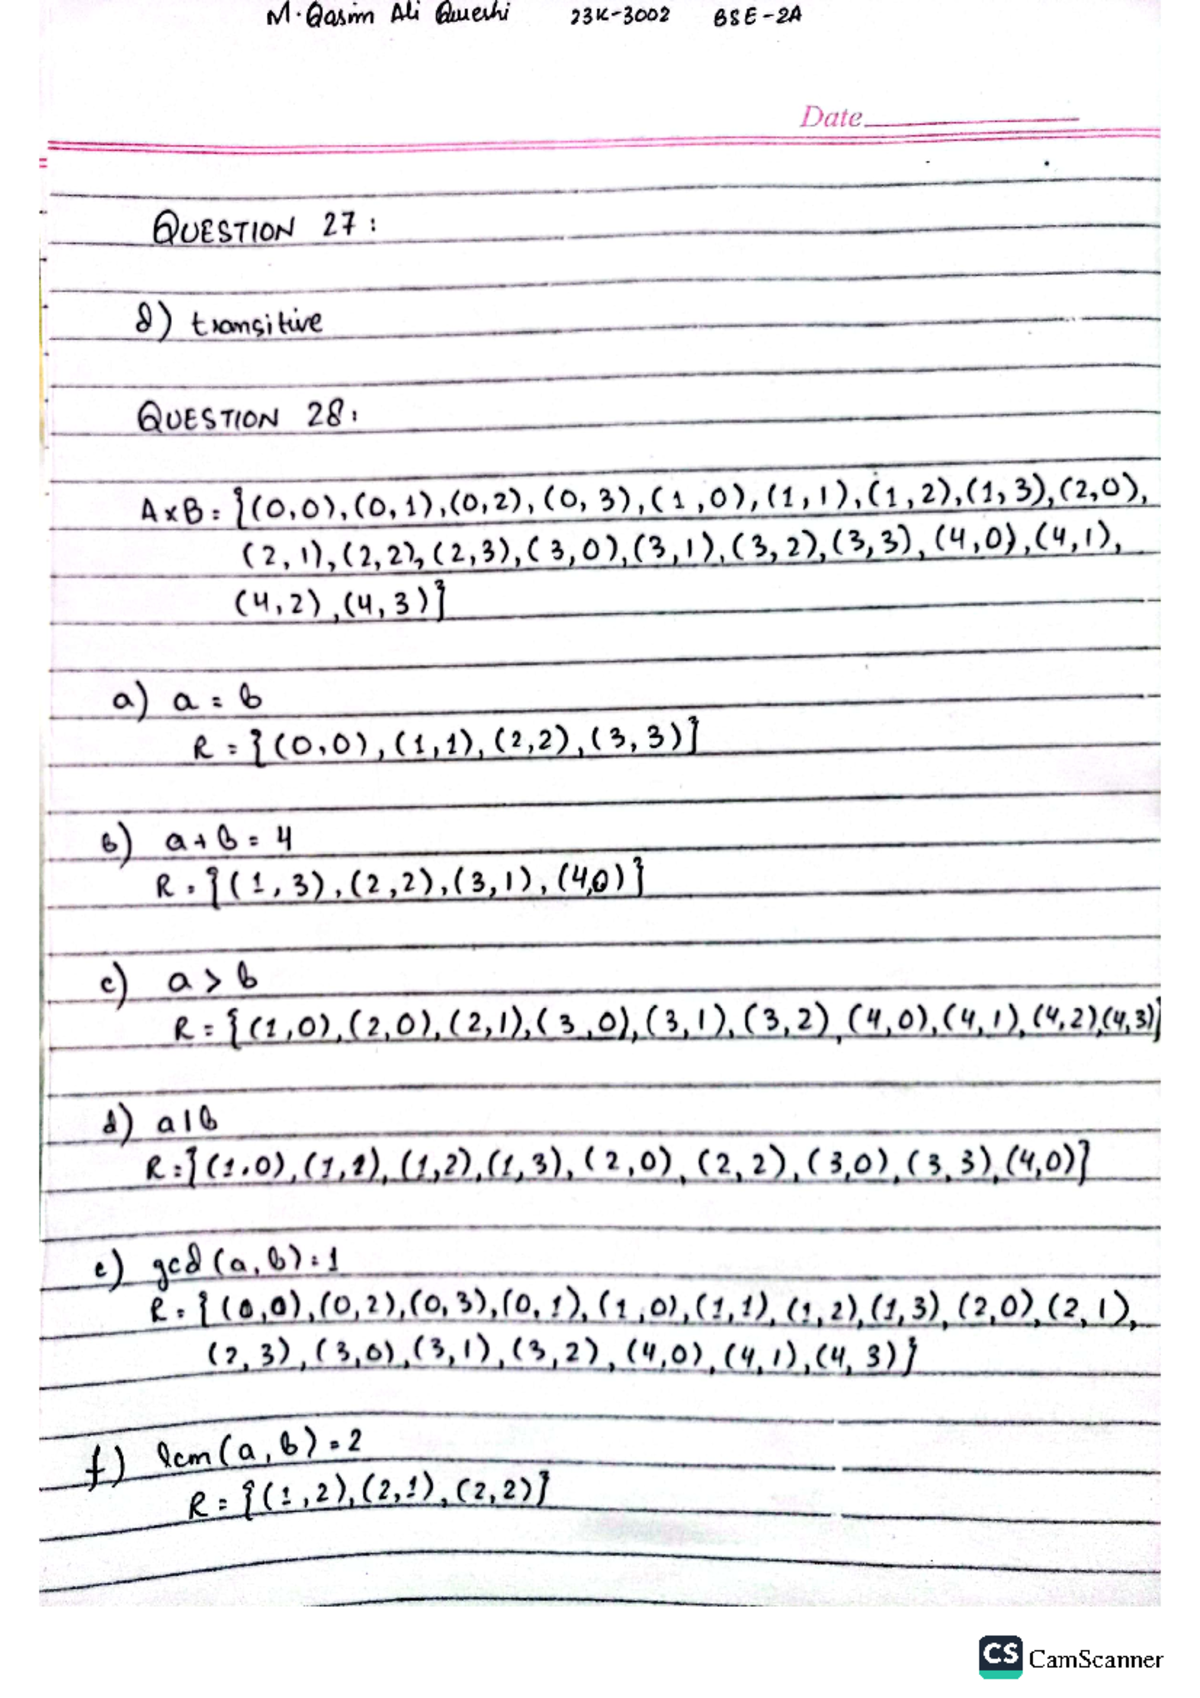 M. Qasim Ali Qureshi 23K-3002 BSE-2A
Date
QUESTION 27:
d) transitive
QUESTION 28:
A×B = {(0,0),(0,1),(0,2),(0,3),(1,0),(1,1),(1,2),(1,3),(2,0),
(2,1),(2,2),(2,3),(3,0),(3,1),(3,2),(3,3),(4,0),(4,1),
(4,2),(4,3)}
a) a = b
R = {(0,0),(1,1),(2,2),(3,3)}
b) a+b = 4
R = {(1,3),(2,2),(3,1),(4,0)}
c) a > b
R = {(1,0),(2,0),(2,1),(3,0),(3,1),(3,2),(4,0),(4,1),(4,2),(4,3)}
d) a|b
R = {(1,0),(1,1),(1,2),(1,3),(2,0),(2,2),(3,0),(3,3),(4,0)}
e) gcd(a,b)=1
R = {(0,0),(0,2),(0,3),(0,1),(1,0),(1,1),(1,2),(1,3),(2,0),(2,1),
(2,3),(3,0),(3,1),(3,2),(4,0),(4,1),(4,3)}
f) lcm(a,b)=2
R = {(1,2),(2,1),(2,2)}
CS CamScanner